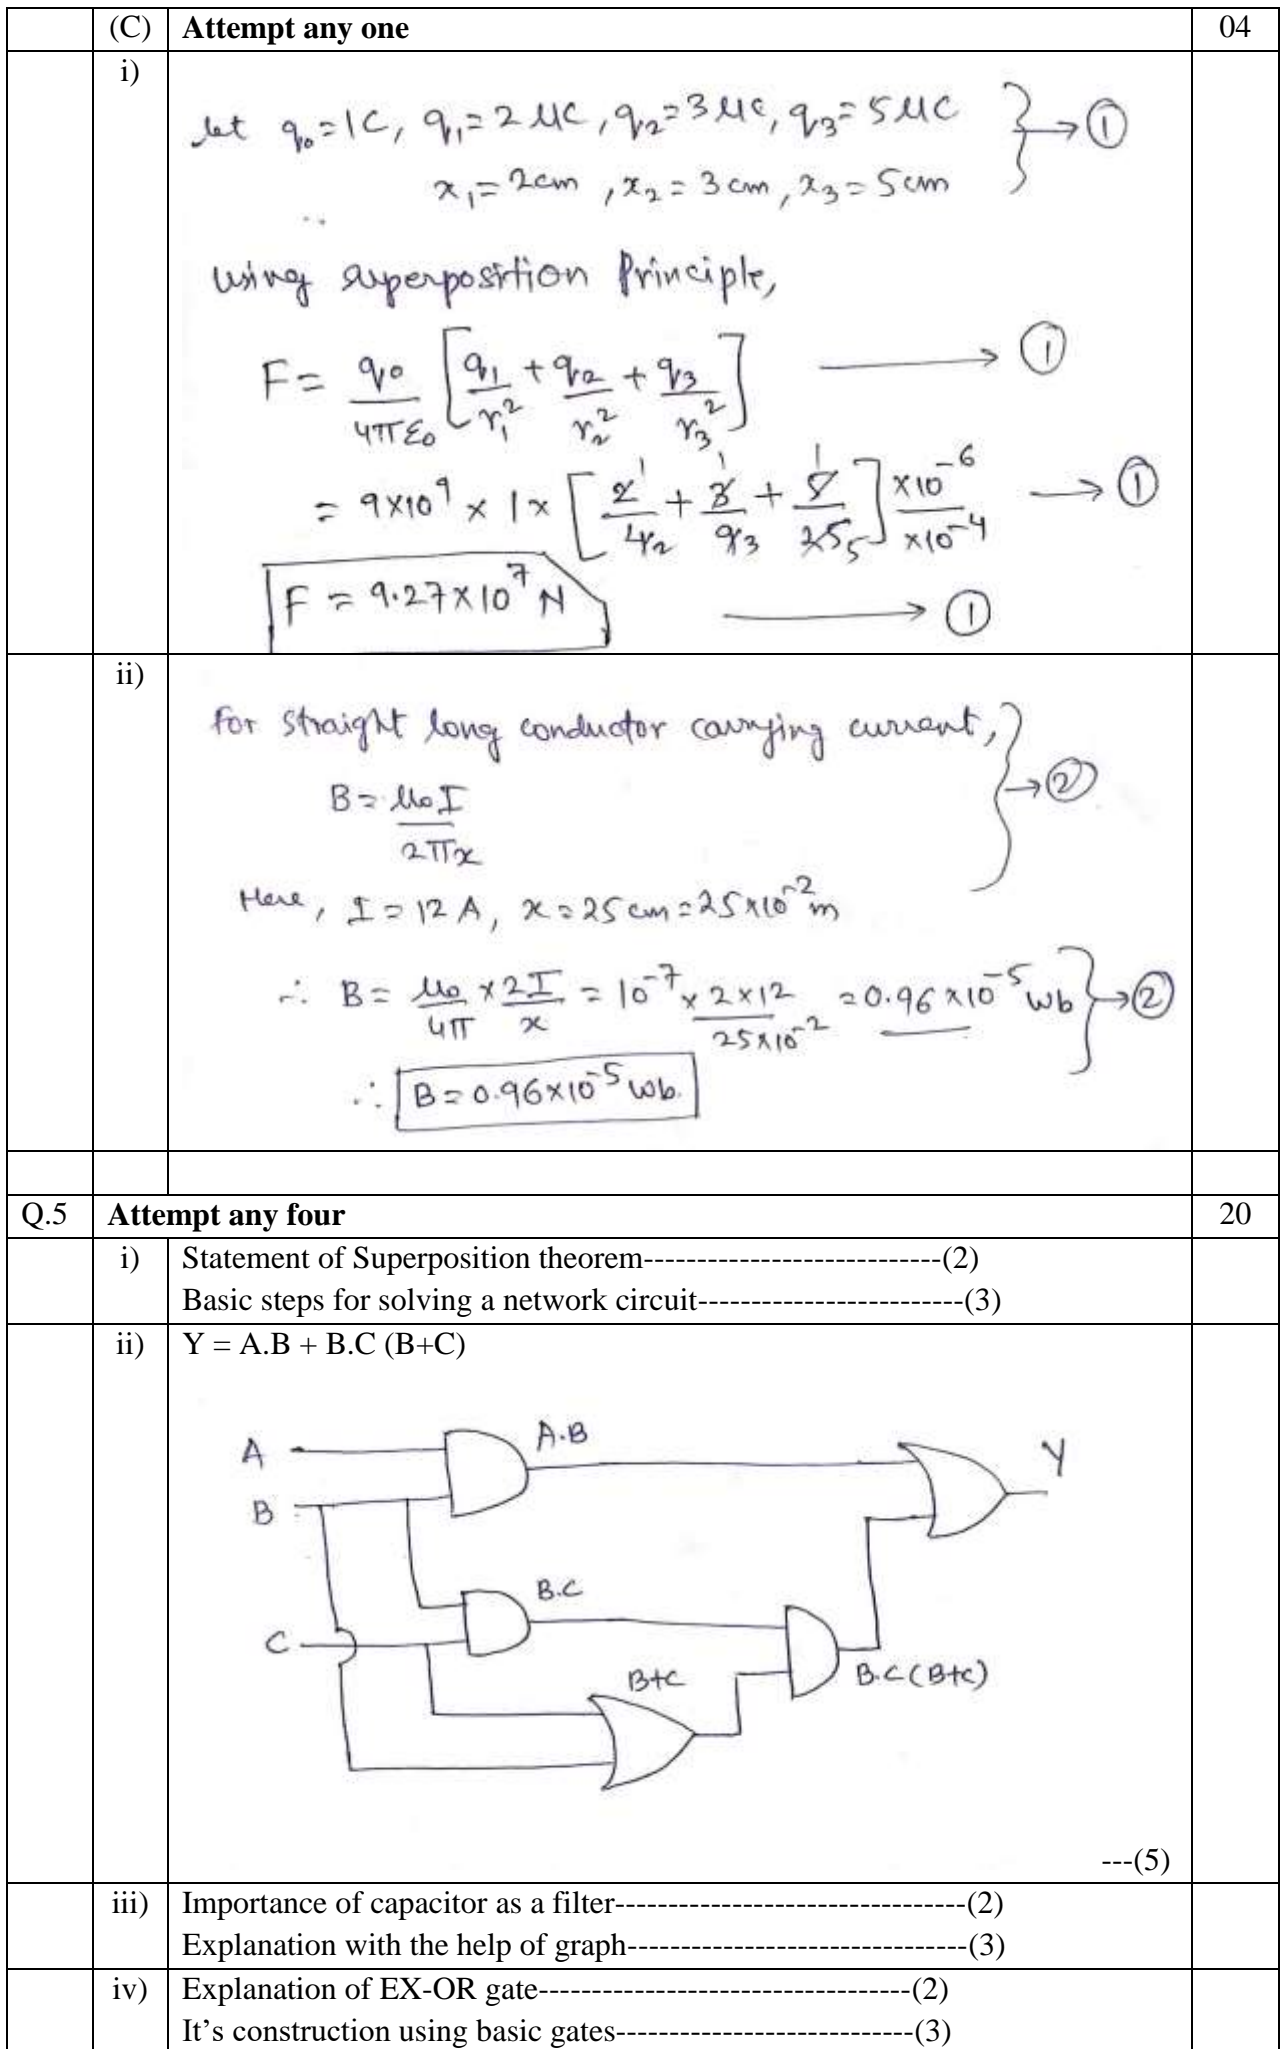 (C) Attempt any one 04
i)
Let q₀=1C, q₁=2 μC, q₂=3 μC, q₃=5 μC } → ①
x₁=2cm, x₂=3 cm, x₃=5cm
∴
using superposition Principle,
F = q₀/4πε₀ [q₁/r₁² + q₂/r₂² + q₃/r₃²] → ①
= 9×10⁹ × 1× [2̸¹/4̸₂ + 3̸¹/9̸₃ + 5̸¹/2̸5̸₅] ×10⁻⁶/×10⁻⁴ → ①
F = 9.27×10⁷ N → ①
ii)
For straight long conductor carrying current, } → ②
B = μ₀I/2πx
Here, I = 12 A, x = 25 cm = 25×10⁻² m
∴ B = μ₀/4π × 2I/x = 10⁻⁷ × 2×12/25×10⁻² = 0.96×10⁻⁵ wb } → ②
∴ B = 0.96×10⁻⁵ wb.
Q.5 Attempt any four 20
i) Statement of Superposition theorem----------------------------(2)
Basic steps for solving a network circuit-------------------------(3)
ii) Y = A.B + B.C (B+C)
A A.B Y
B
B.C
C
B+C B.C(B+C)
---(5)
iii) Importance of capacitor as a filter---------------------------------(2)
Explanation with the help of graph--------------------------------(3)
iv) Explanation of EX-OR gate-----------------------------------(2)
It's construction using basic gates----------------------------(3)